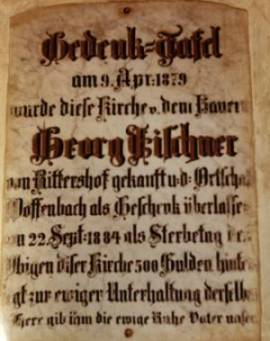 Gedenk=Tafel
am 9. Apr. 1879
wurde diese Kirche v. dem Bauern
Georg Fischner
von Rittershof gekauft u. d. Ortscha
Poffenbach als Geschenk überlasse
m 22. Sept. 1884 als Sterbetag des
Obigen dieser Kirche 500 Gulden hinte
gt zur ewiger Unterhaltung derselbe
Herr gib ihm die ewige Ruhe Vater unse